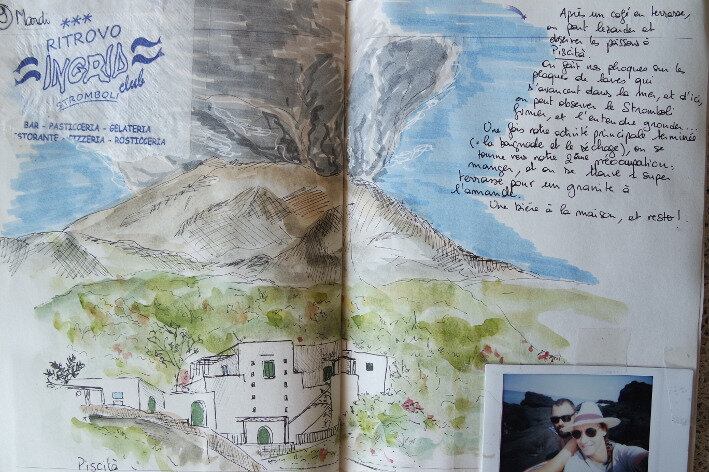 Mardi
***
RITROVO
INGRID
club
STROMBOLI
BAR - PASTICCERIA - GELATERIA
STORANTE - PIZZERIA - ROSTICCERIA
Après un café en terrasse,
on peut lézarder et
observer les poissons à
Piscità
On fait nos phoques sur les
plaques de laves qui
s'avancent dans la mer, et d'ici,
on peut observer le Stromboli
fumer, et l'entendre gronder...
Une fois notre activité principale terminée
(= la baignade et le séchage), on se
tourne vers notre 2ème préoccupation:
manger, et on se trouve 1 super
terrasse pour un granité à
l'amande.
Une bière à la maison, et resto!
Piscità